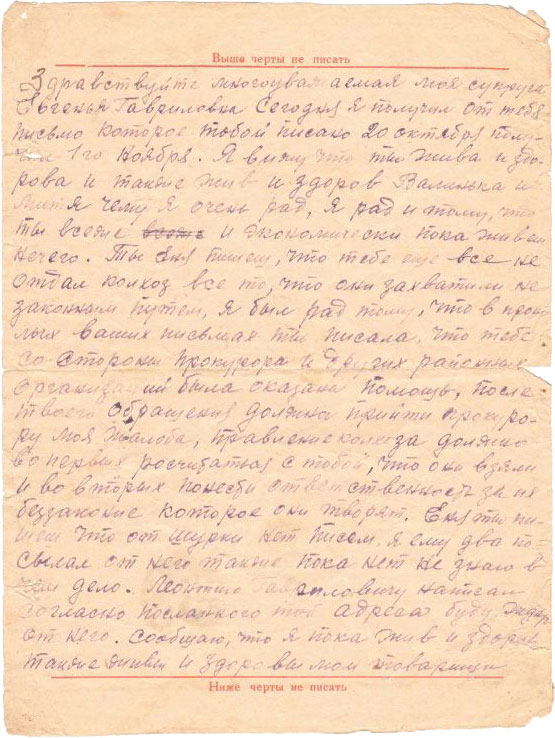 Выше черты не писать
Здравствуйте многоуважаемая моя супруга
Евгенья Гавриловна Сегодня я получил от тебя
письмо которое тобой писано 20 октября полу-
чил 1го ноября. Я вижу что ты жива и здо-
рова и также жив и здоров Валинька и
Митя чему я очень рад, я рад и тому, что
ты всеже всеже и экономически пока живеш
нечего. Ты Еня пишеш, что тебе еще все не
отдал колхоз все то, что они захватили не
законным путем, я был рад тому, что в прош
лых ваших письмах ты писала, что тебе
со стороны прокурора и других районных
организаций была оказана помощь, после
твоего обращения должна прийти прокуро-
ру моя жалоба, правление колхоза должно
во первых росчитаться с тобой, что они взяли
и во вторых понести ответственность за их
беззаконие которое они творят. Еня ты пи-
шеш что от Шурки нет писем, я ему два по-
сылал от него также пока нет не знаю в
чем дело. Леонтию Гавриловичу написал
согласно посланного тоб адреса буду
от него. Сообщаю, что я пока жив и здоров
также живы и здоровы мои товарищи
Ниже черты не писать